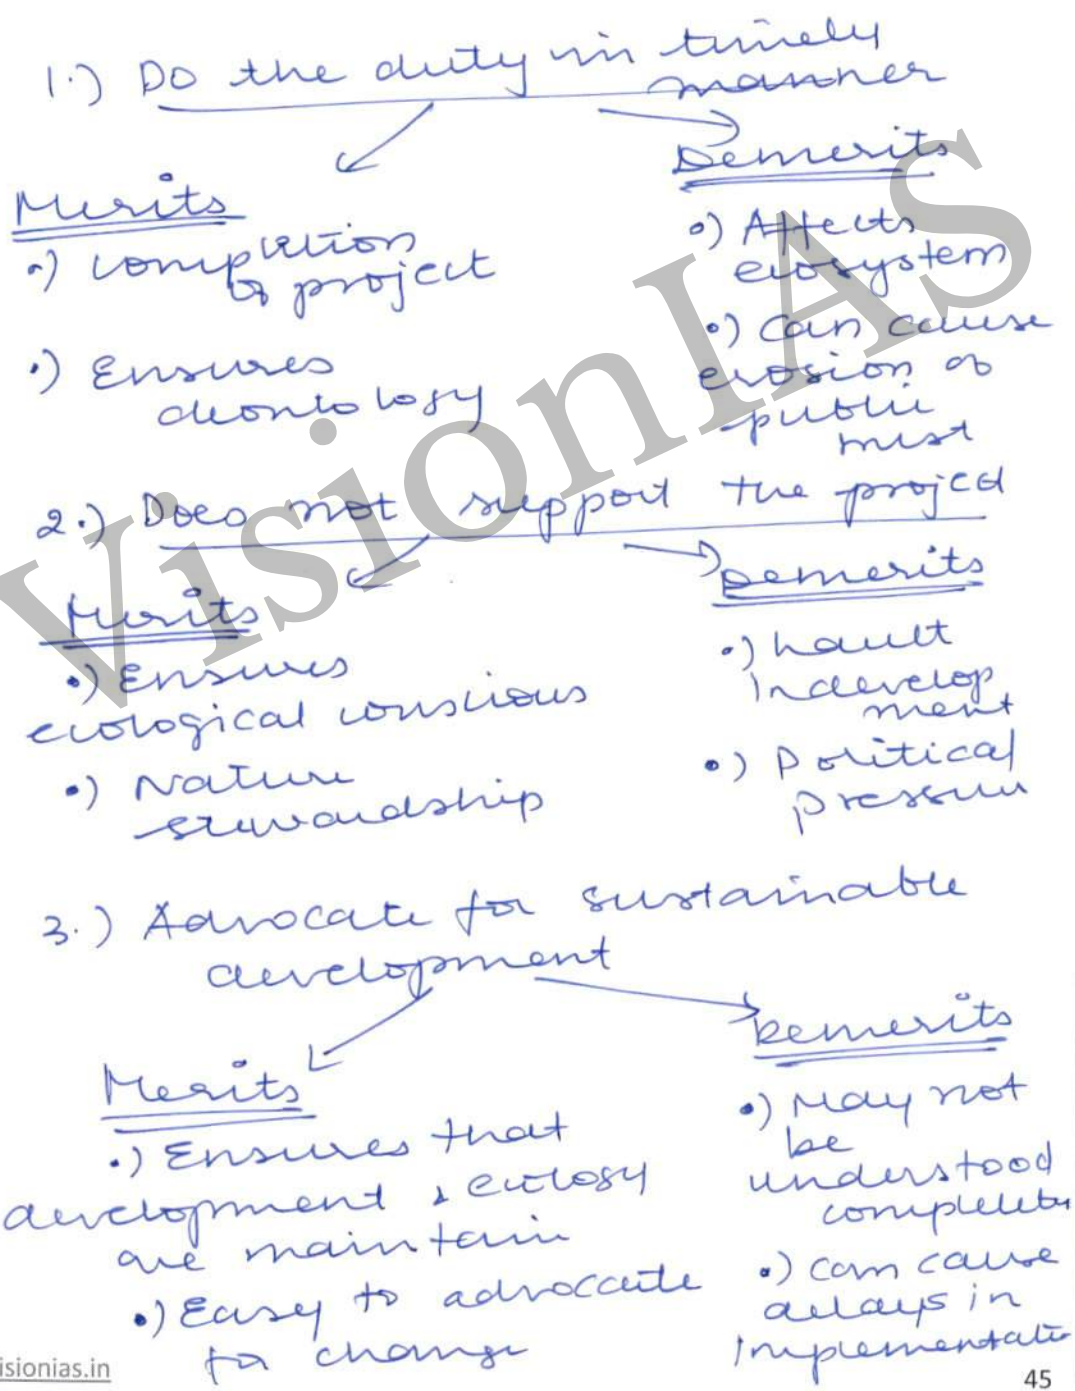 1.) Do the duty in timely
manner
Merits
•) completion
of project
•) Ensures
deontology
Demerits
•) Affects
ecosystem
•) can cause
erosion of
public
trust
2.) Does not support the project
Merits
•) Ensures
ecological conscious
•) Nature
stewardship
Demerits
•) hault
in develop
ment
•) Political
pressure
3.) Advocate for sustainable
development
Merits
•) Ensures that
development & ecology
are maintain
•) Easy to advocate
for change
Demerits
•) May not
be
understood
completely
•) can cause
delays in
implementatio
VisionIAS
isionias.in
45